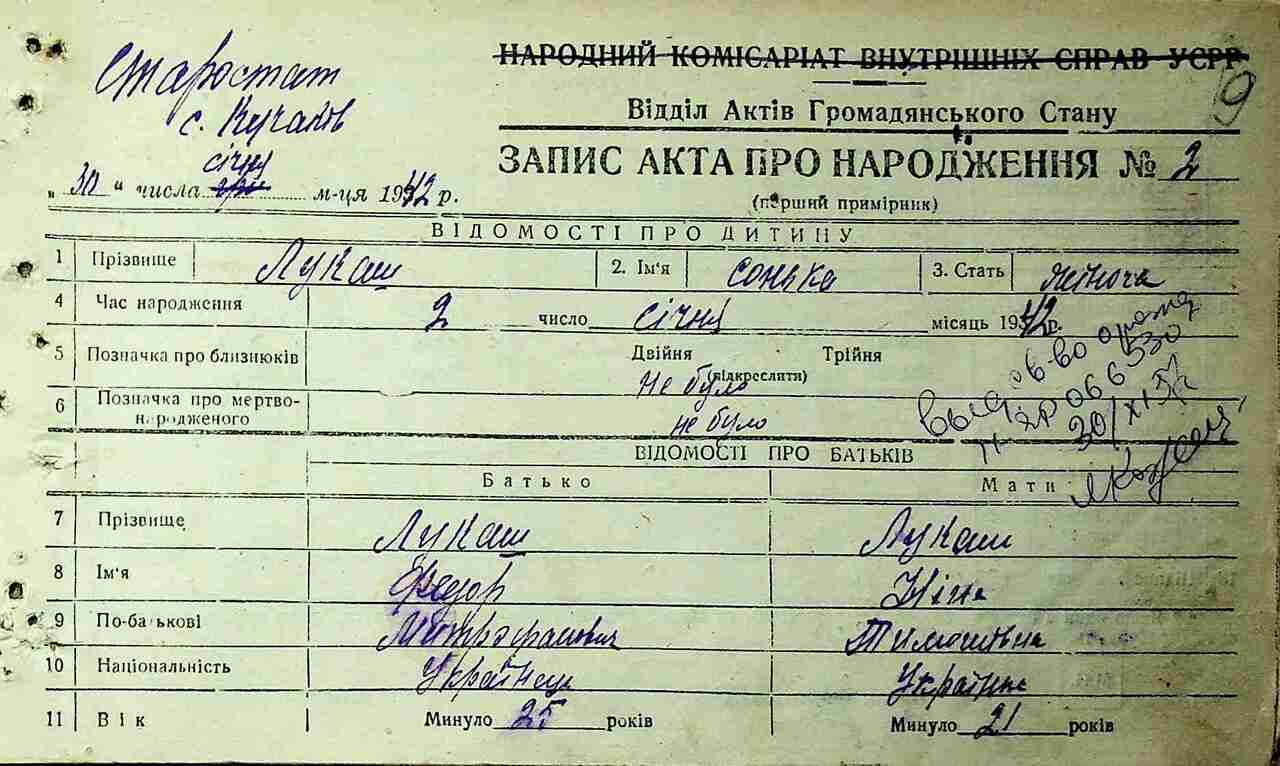 Старостат
с. Кучаков
НАРОДНИЙ КОМІСАРІАТ ВНУТРІШНІХ СПРАВ УСРР
9
Відділ Актів Громадянського Стану
ЗАПИС АКТА ПРО НАРОДЖЕННЯ № 2
(перший примірник)
„30“ числа січня м-ця 1942 р.
ВІДОМОСТІ ПРО ДИТИНУ
1 Прізвище Лукаш 2. Ім'я Сонька 3. Стать жіноча
4 Час народження 2 число січня місяць 1942 р.
5 Позначка про близнюків Двійня Трійня
(підкреслити)
не було
6 Позначка про мертвонародженого не було
2066530
30/XI
ВІДОМОСТІ ПРО БАТЬКІВ
Батько Мати
7 Прізвище Лукаш Лукаш
8 Ім'я Федор Ніна
9 По-батькові Митрофанович Тимошівна
10 Національність Українець Українка
11 Вік Минуло 25 років Минуло 21 років